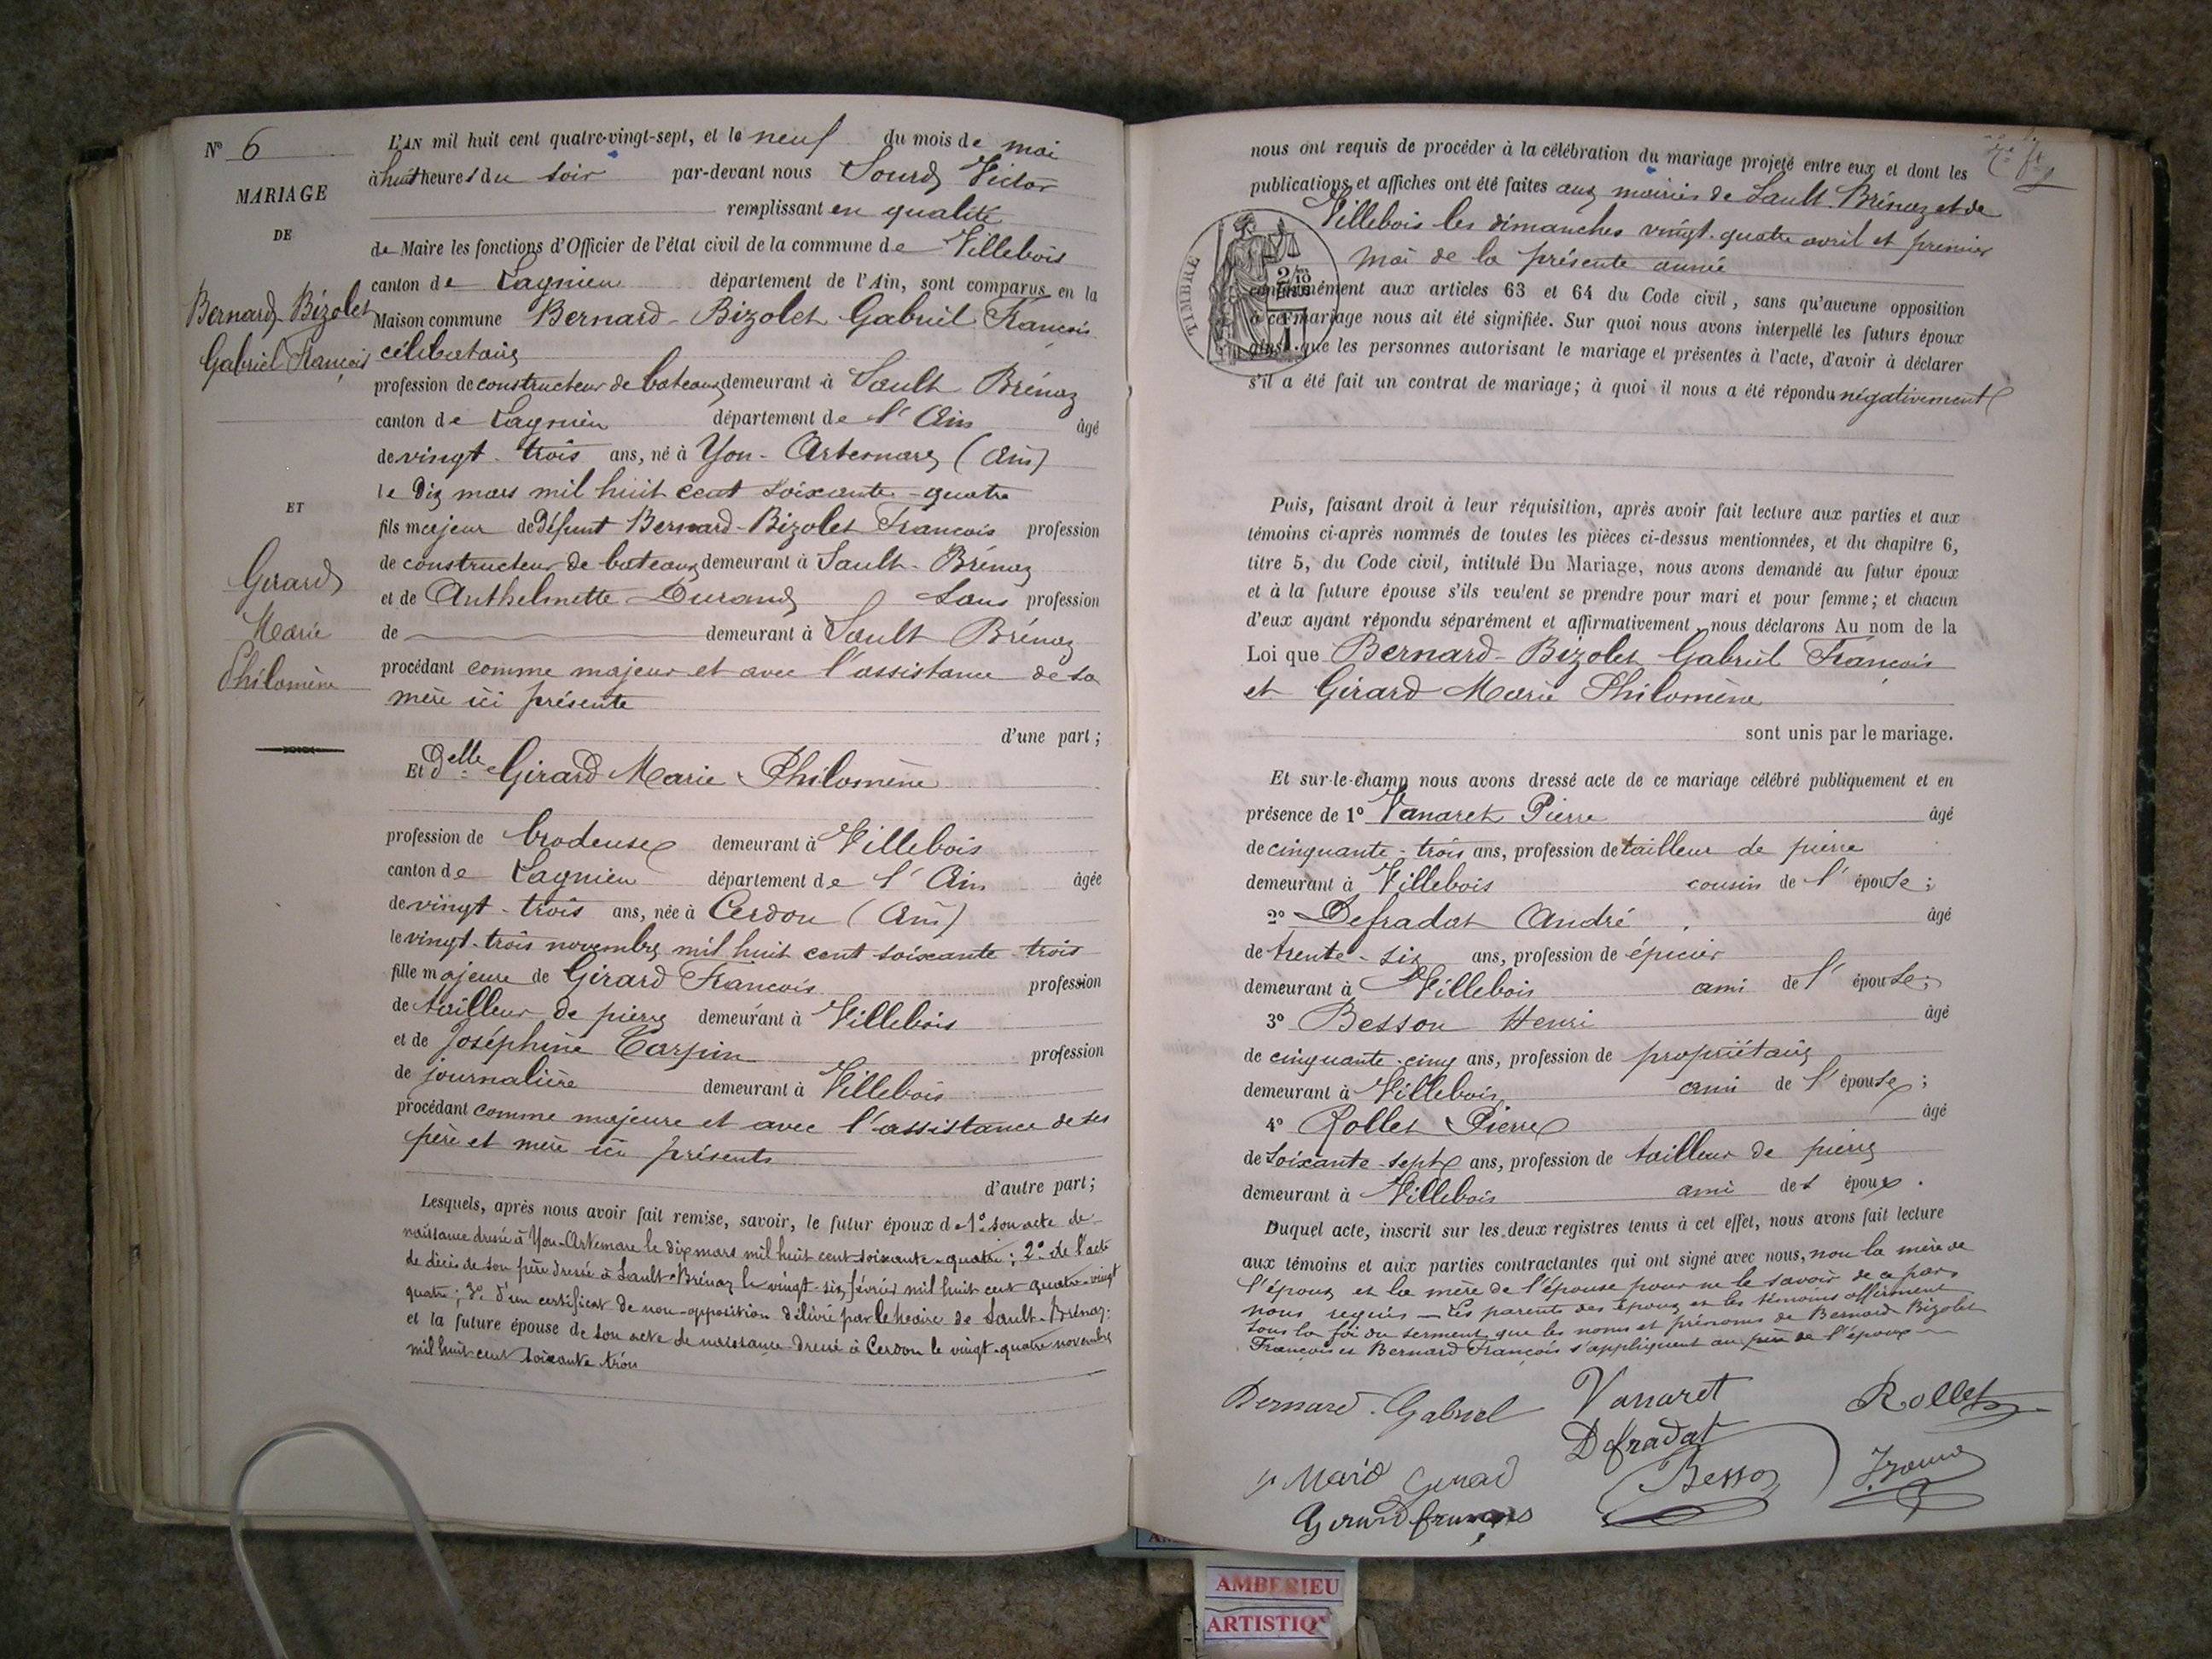 N° 6
MARIAGE
DE
Bernard Bizolet
Gabriel François
ET
Girard
Marie
Philomène
L'AN mil huit cent quatre-vingt-sept, et le neuf du mois de mai
à huit heures du soir par-devant nous Sourd Victor
remplissant en qualité
de Maire les fonctions d'Officier de l'état civil de la commune de Villebois
canton de Lagnieu département de l'Ain, sont comparus en la
Maison commune Bernard-Bizolet Gabriel François
célibataire
profession de constructeur de bateaux demeurant à Sault Brénaz
canton de Lagnieu département de l'Ain âgé
de vingt-trois ans, né à Yon-Artemare (Ain)
le Dix mars mil huit cent soixante-quatre
fils majeur de Défunt Bernard-Bizolet François profession
de constructeur de bateaux demeurant à Sault-Brénaz
et de Anthelmette Durand Sans profession
de demeurant à Sault Brénaz
procédant comme majeur et avec l'assistance de sa
mère ici présente
d'une part;
Et Delle Girard Marie Philomène
profession de brodeuse demeurant à Villebois
canton de Lagnieu département de l'Ain âgée
de vingt-trois ans, née à Cerdon (Ain)
le vingt-trois novembre mil huit cent soixante trois
fille majeure de Girard François profession
de tailleur de pierre demeurant à Villebois
et de Joséphine Carpin profession
de journalière demeurant à Villebois
procédant comme majeure et avec l'assistance de ses
père et mère ici présents
d'autre part;
Lesquels, après nous avoir fait remise, savoir, le futur époux de 1° son acte de
naissance dressé à Yon-Artemare le dix mars mil huit cent soixante-quatre; 2° de l'acte
de décès de son père dressé à Sault-Brénaz le vingt-six février mil huit cent quatre-vingt
quatre; 3° d'un certificat de non-opposition délivré par le Maire de Sault-Brénaz;
et la future épouse de son acte de naissance dressé à Cerdon le vingt-quatre novembre
mil huit cent soixante trois
nous ont requis de procéder à la célébration du mariage projeté entre eux et dont les
publications et affiches ont été faites aux mairies de Sault-Brénaz et de
Villebois les dimanches vingt-quatre avril et premier
mai de la présente année
TIMBRE
2/10
conformément aux articles 63 et 64 du Code civil, sans qu'aucune opposition
à ce mariage nous ait été signifiée. Sur quoi nous avons interpellé les futurs époux
ainsi que les personnes autorisant le mariage et présentes à l'acte, d'avoir à déclarer
s'il a été fait un contrat de mariage; à quoi il nous a été répondu négativement
Puis, faisant droit à leur réquisition, après avoir fait lecture aux parties et aux
témoins ci-après nommés de toutes les pièces ci-dessus mentionnées, et du chapitre 6,
titre 5, du Code civil, intitulé Du Mariage, nous avons demandé au futur époux
et à la future épouse s'ils veulent se prendre pour mari et pour femme; et chacun
d'eux ayant répondu séparément et affirmativement, nous déclarons Au nom de la
Loi que Bernard-Bizolet Gabriel François
et Girard Marie Philomène
sont unis par le mariage.
Et sur-le-champ nous avons dressé acte de ce mariage célébré publiquement et en
présence de 1° Vanaret Pierre âgé
de cinquante-trois ans, profession de tailleur de pierre
demeurant à Villebois cousin de l'épouse;
2° Defradat André âgé
de trente-six ans, profession de épicier
demeurant à Villebois ami de l'épouse;
3° Besson Henri âgé
de cinquante-cinq ans, profession de propriétaire
demeurant à Villebois ami de l'épouse;
4° Rollet Pierre âgé
de soixante-sept ans, profession de tailleur de pierre
demeurant à Villebois ami des époux.
Duquel acte, inscrit sur les deux registres tenus à cet effet, nous avons fait lecture
aux témoins et aux parties contractantes qui ont signé avec nous, non la mère de
l'époux et la mère de l'épouse pour ne le savoir de ce par
nous requis — Les parents des époux et les témoins affirment
sous la foi du serment que les noms et prénoms de Bernard Bizolet
François et Bernard François s'appliquent au père de l'époux
Bernard Gabriel Vanaret Rollet
Defradat
Marie Girard Besson
Girard françois
AMBERIEU
ARTISTIQ